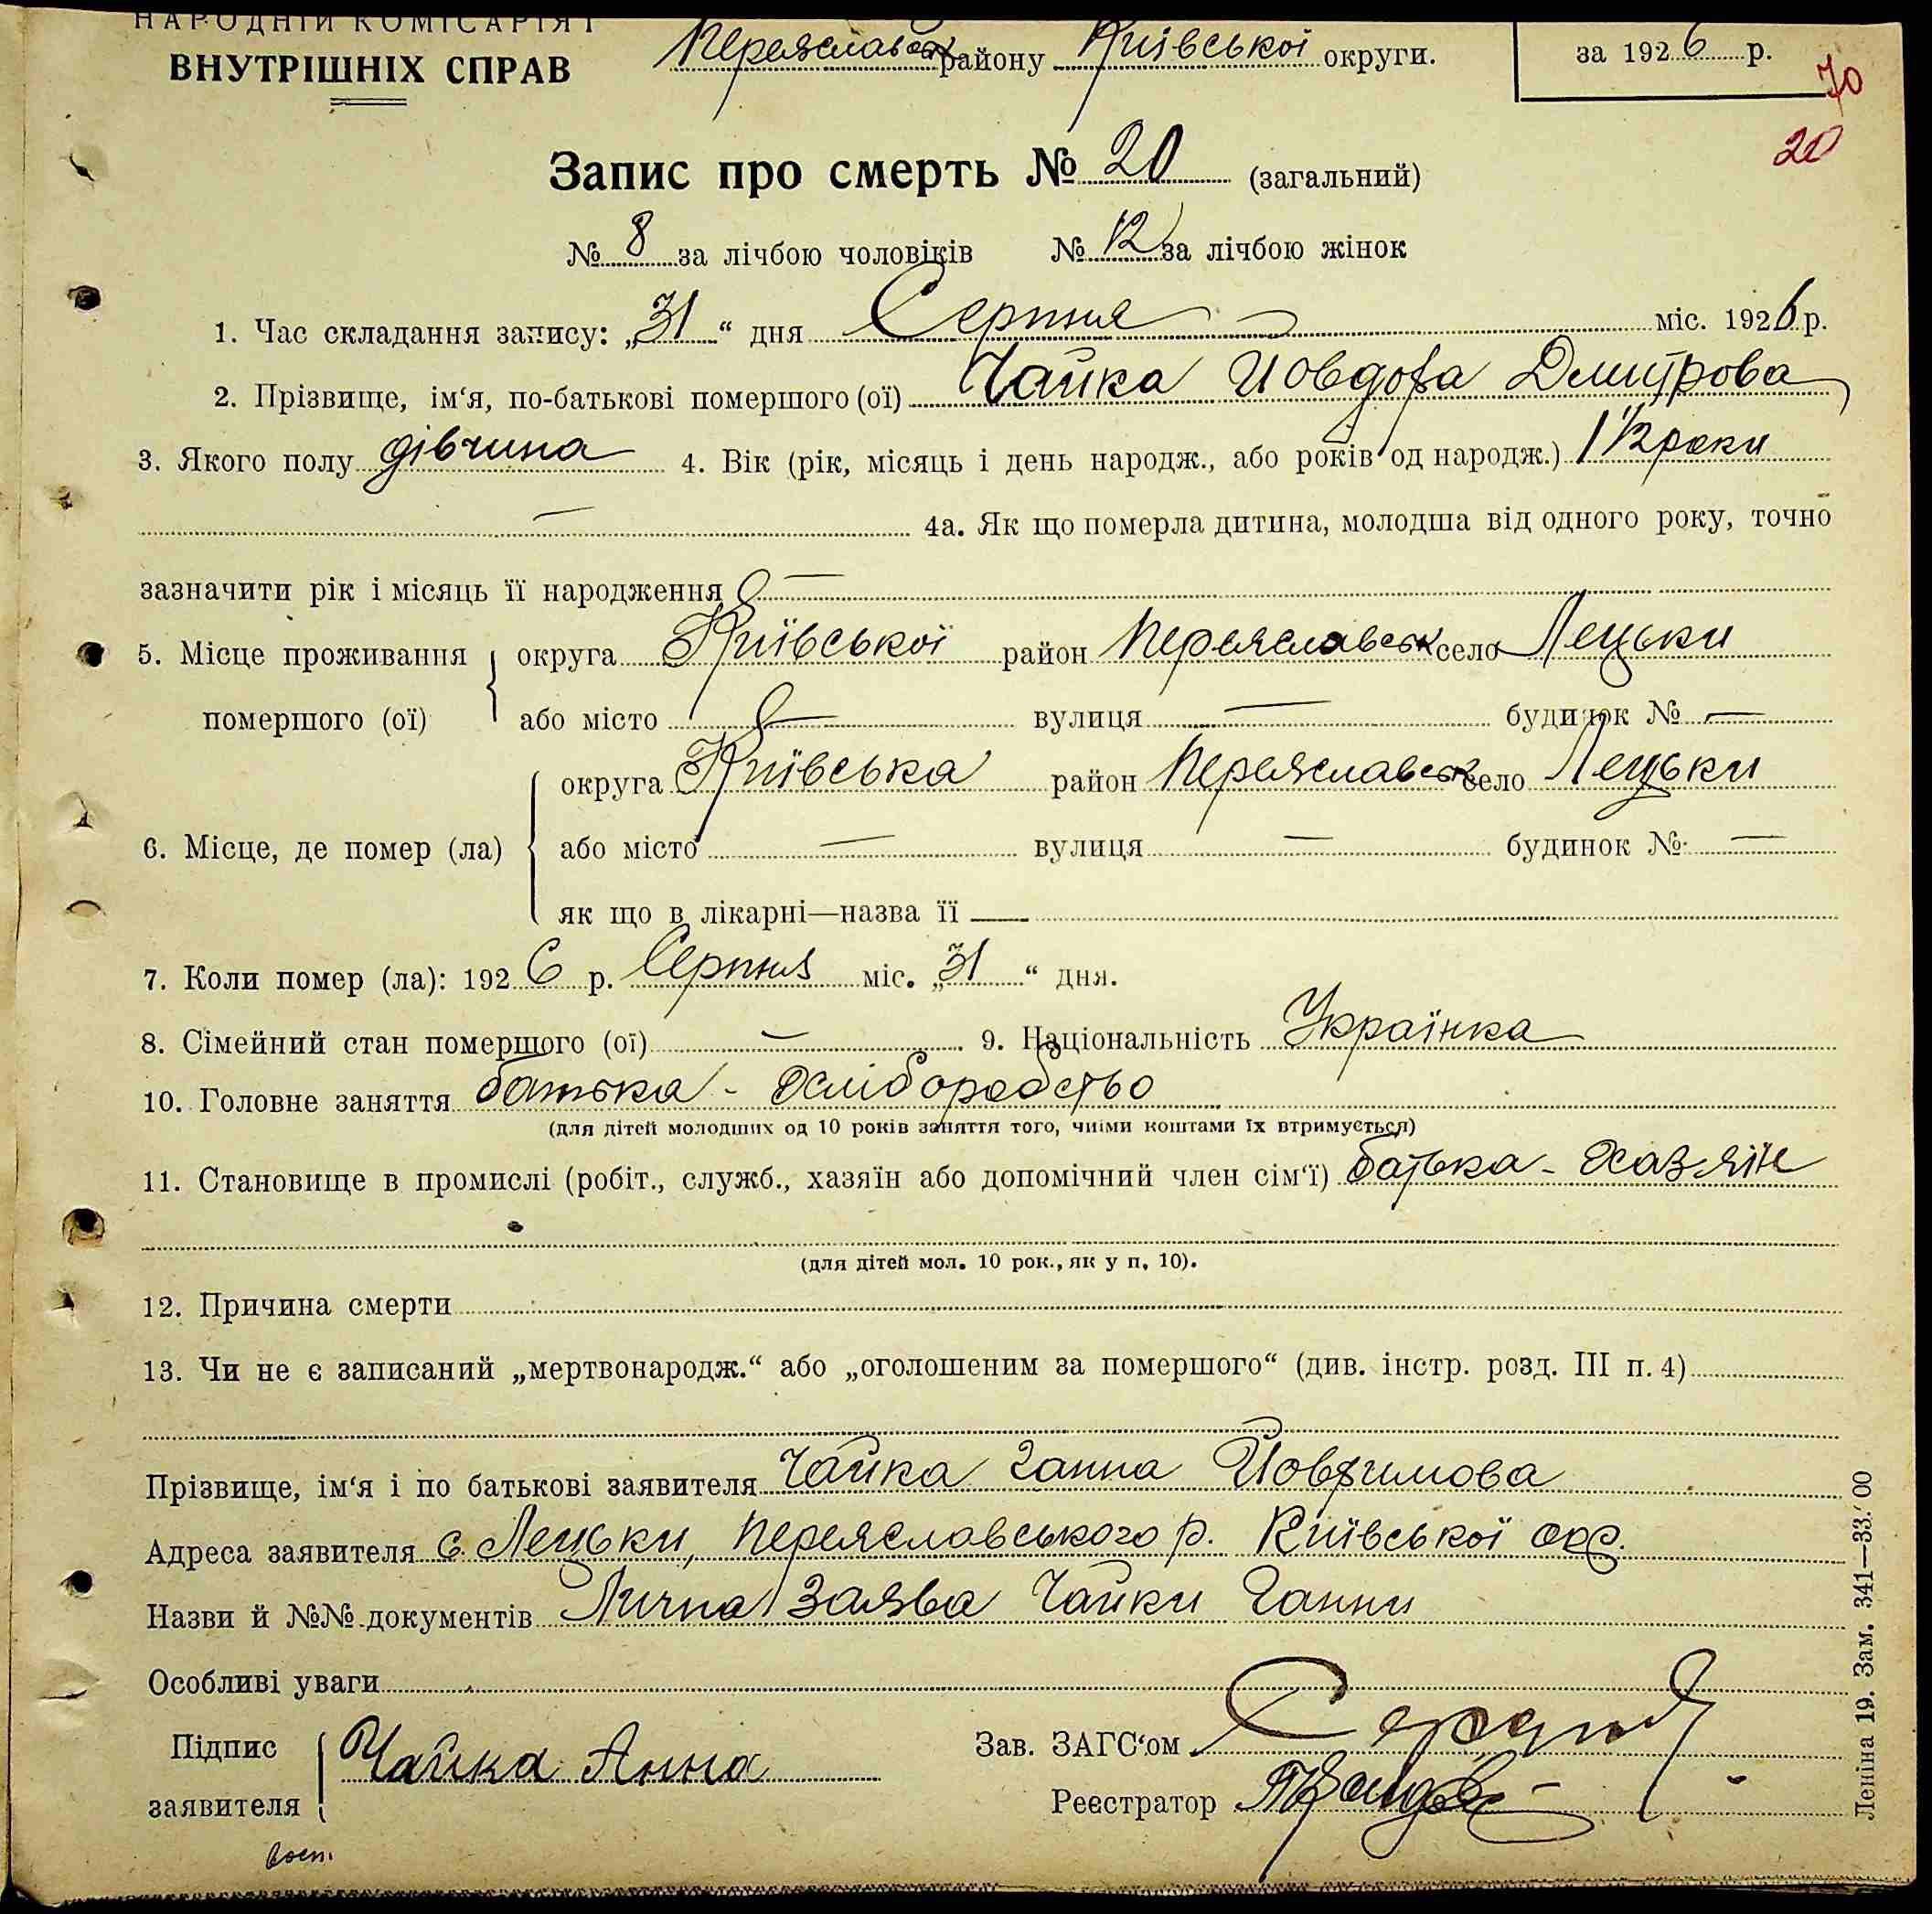 НАРОДНІЙ КОМІСАРІЯТ
ВНУТРІШНІХ СПРАВ
Переяславськ району Київської округи.
за 1926 р.
70
20
Запис про смерть № 20 (загальний)
№ 8 за лічбою чоловіків № 12 за лічбою жінок
1. Час складання запису: „31“ дня Серпня міс. 1926 р.
2. Прізвище, ім‘я, по-батькові помершого (ої) Чайка Йовдоха Дмитрова
3. Якого полу дівчина 4. Вік (рік, місяць і день народж., або років од народж.) 1 1/2 роки
— 4а. Як що померла дитина, молодша від одного року, точно
зазначити рік і місяць її народження —
5. Місце проживання помершого (ої) { округа Київської район Переяславськ село Лецьки
або місто — вулиця — будинок № —
6. Місце, де помер (ла) { округа Київська район Переяславськ село Лецьки
або місто — вулиця — будинок № —
як що в лікарні—назва її —
7. Коли помер (ла): 1926 р. Серпня міс. „31“ дня.
8. Сімейний стан помершого (ої) — 9. Національність Українка
10. Головне заняття батька - хліборобство
(для дітей молодших од 10 років заняття того, чиїми коштами їх втримується)
11. Становище в промислі (робіт., служб., хазяїн або допомічний член сім‘ї) батька - хазяїн
(для дітей мол. 10 рок., як у п. 10).
12. Причина смерти
13. Чи не є записаний „мертвонародж.“ або „оголошеним за помершого“ (див. інстр. розд. III п. 4)
Прізвище, ім‘я і по батькові заявителя Чайка Ганна Йовхимова
Адреса заявителя с. Лецьки, Переяславського р. Київської окр.
Назви й №№ документів Лична заява Чайки Ганни
Особливі уваги
Підпис заявителя { Чайка Анна
Зав. ЗАГС‘ом
Реєстратор
Леніна 19. Зам. 341—33.′00